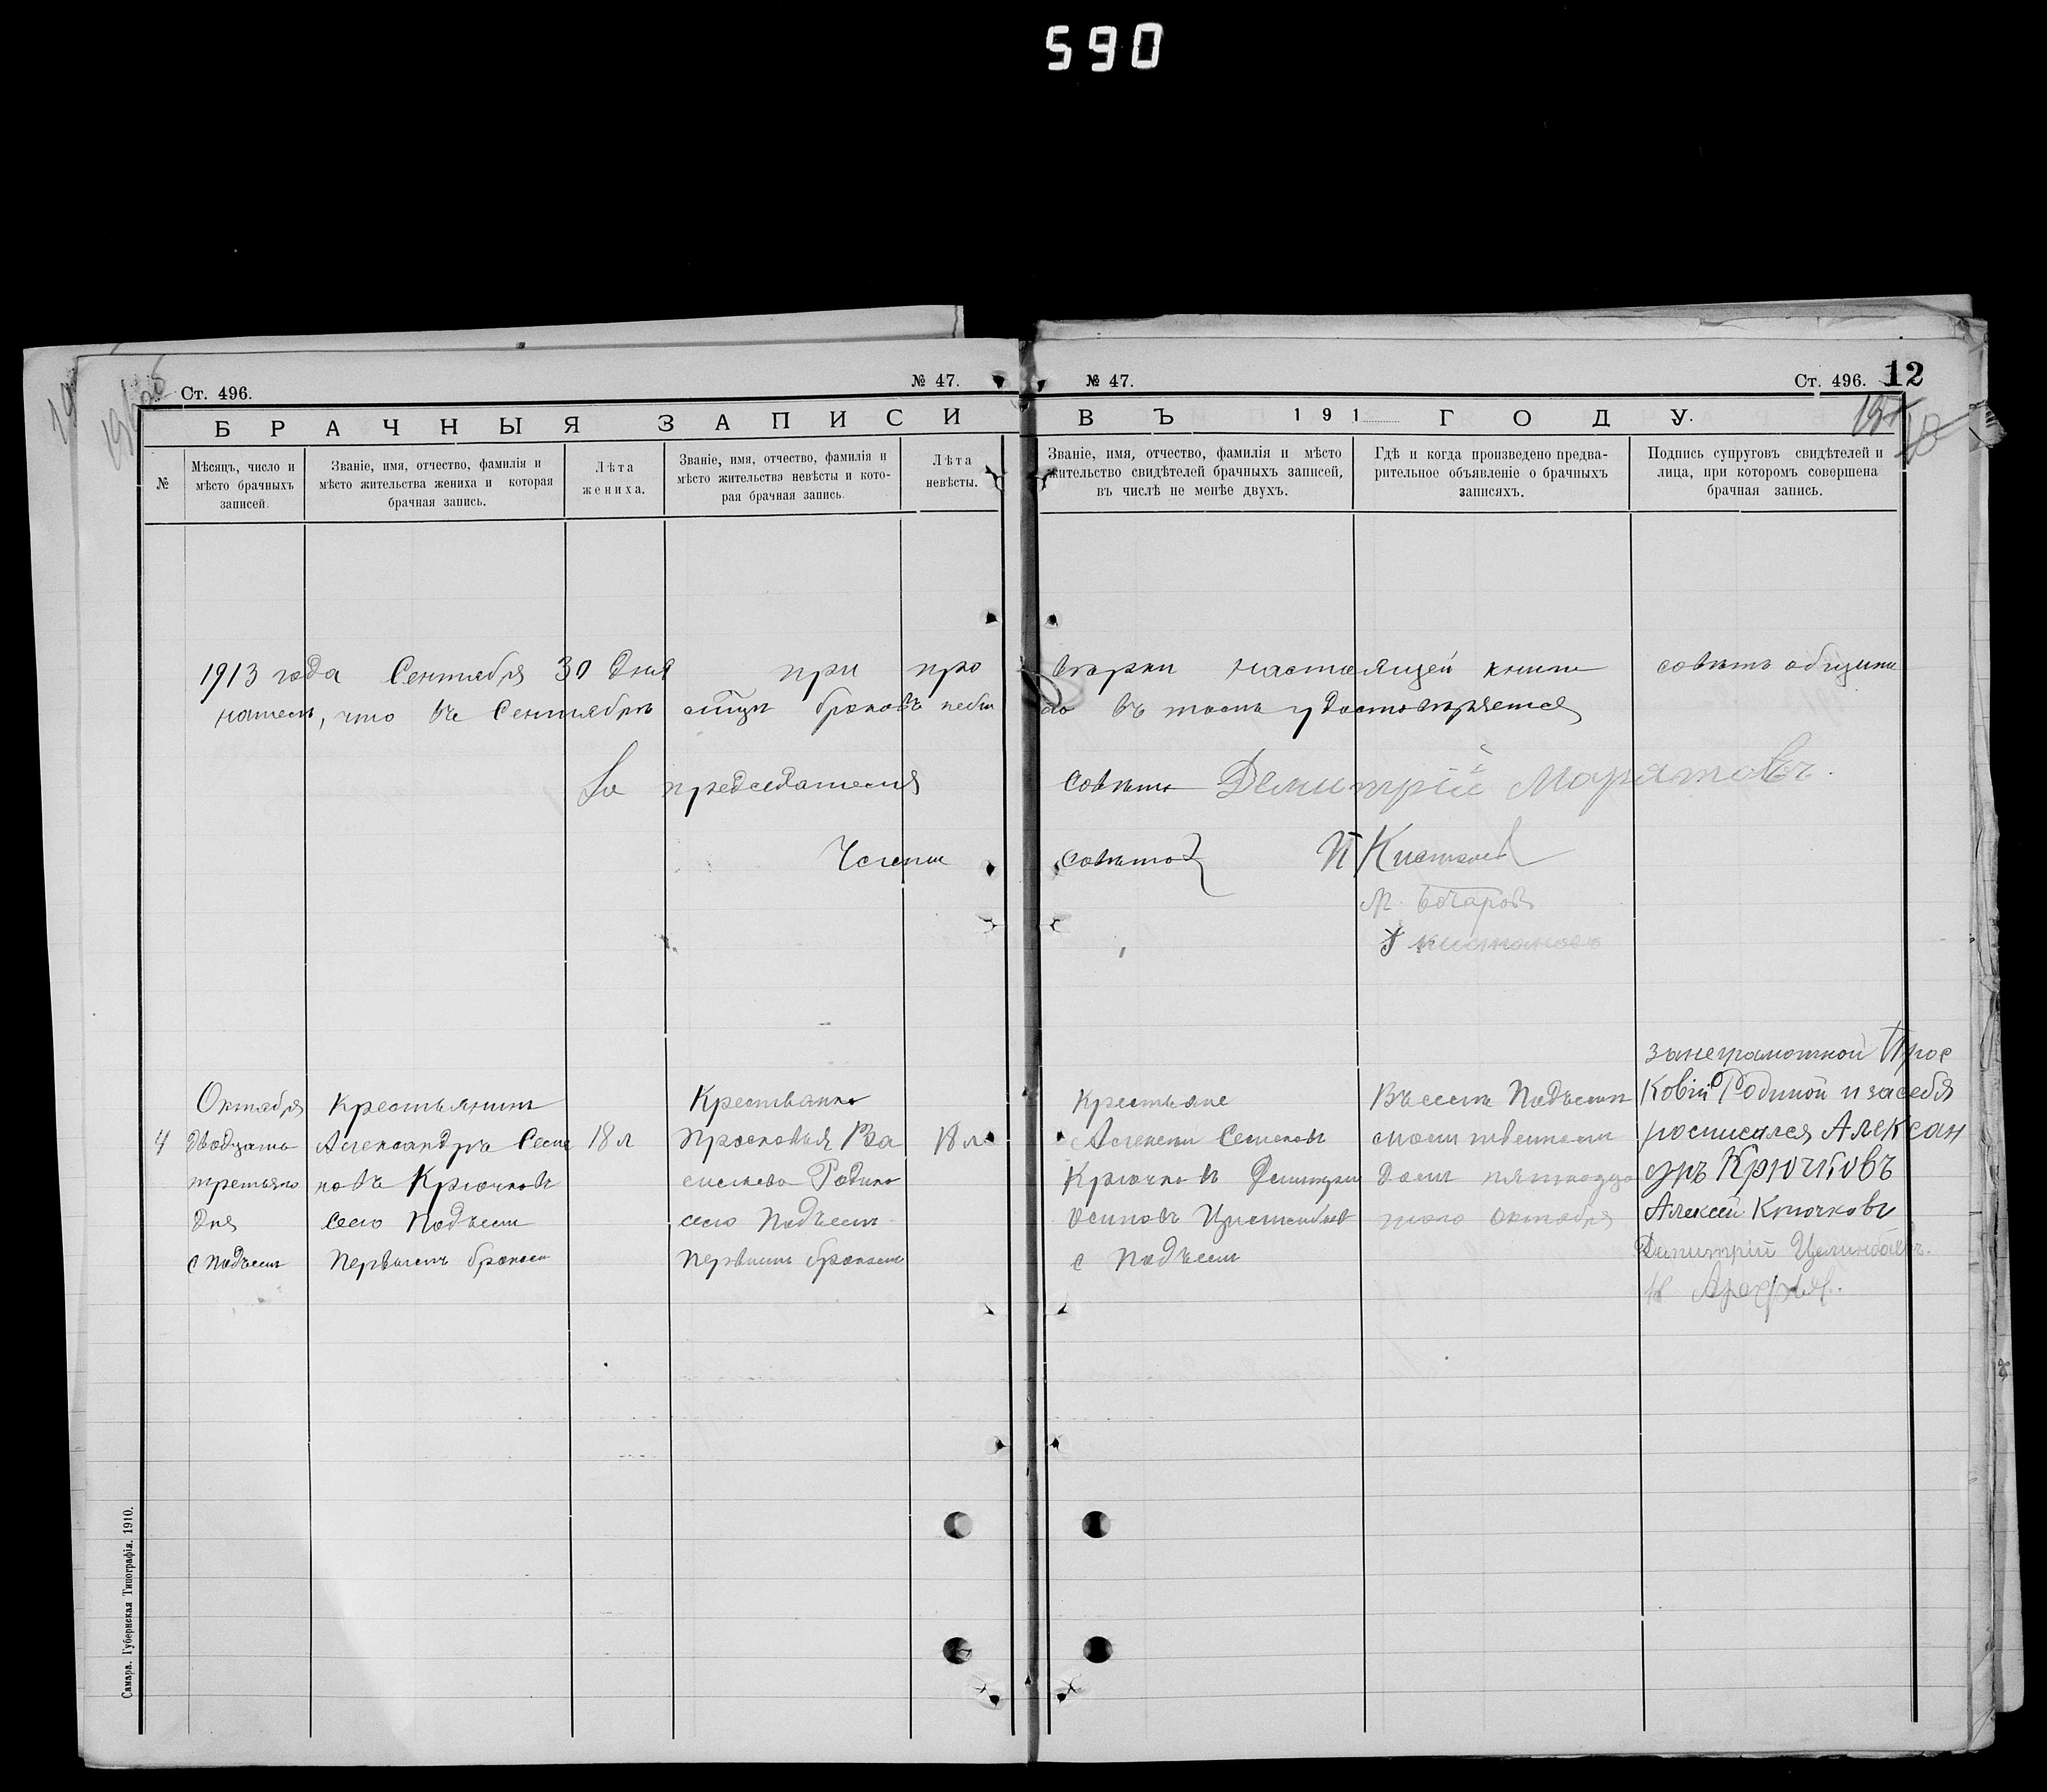 590
Ст. 496.
№ 47.
№ 47.
Ст. 496. 12
БРАЧНЫЯ ЗАПИСИ ВЪ 191 ГОДУ.
№
Мѣсяцъ, число и
мѣсто брачныхъ
записей.
Званіе, имя, отчество, фамилія и
мѣсто жительства жениха и которая
брачная запись.
Лѣта
жениха.
Званіе, имя, отчество, фамилія и
мѣсто жительства невѣсты и кото-
рая брачная запись.
Лѣта
невѣсты.
Званіе, имя, отчество, фамилія и мѣсто
жительство свидѣтелей брачныхъ записей,
въ числѣ не менѣе двухъ.
Гдѣ и когда произведено предва-
рительное объявленіе о брачныхъ
записяхъ.
Подпись супруговъ свидѣтелей и
лица, при которомъ совершена
брачная запись.
1913 года Сентября 30 дня при про вѣрки настоящей книги совѣтъ общины
нашелъ, что въ Сентябрѣ браковъ небы ло въ томъ удостовѣряется
За председателя совѣта Демитрій
Члены совѣта
М. Бочаров
4
Октября
двадцать
третьяго
дня
с Подъемъ
Крестьянинъ
Александръ Семе
новъ Крючковъ
село Подъем
Первымъ бракомъ
18 л
Крестьянка
Просковья Ва
сильева Родина
село Подъем
Первымъ бракомъ
18 л
Крестьяне
Алексей Семеновъ
Крючковъ Демитрий
Осиповъ
с Подъем
Въ селѣ Подъемъ
молитвенномъ
доми пятнадца
таго октября
за неграмотной Прос
ковіи Родиной и за себя
росписался Алексан
дръ Крючковъ
Алексей Крючковъ
Димитрій
Самара. Губернская Типографія. 1910.